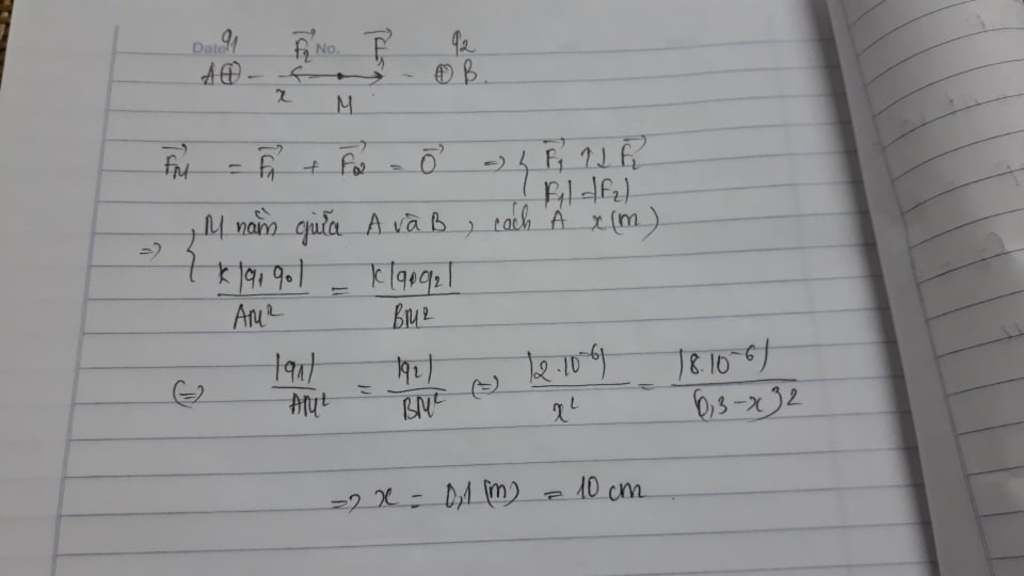 Date No.
q1 F⃗2 F⃗1 q2
A⊕ - ← M → - ⊕B.
x M
F⃗M = F⃗1 + F⃗02 = O⃗ => { F⃗1 ↑↓ F⃗2
|F1| = |F2|
=> { M nằm giữa A và B, cách A x(m)
K|q1 q0| / AM² = K|q0q2| / BM²
(=) |q1| / AM² = |q2| / BM² (=) |2.10⁻⁶| / x² = |8.10⁻⁶| / (0,3-x)²
=> x = 0,1(m) = 10 cm